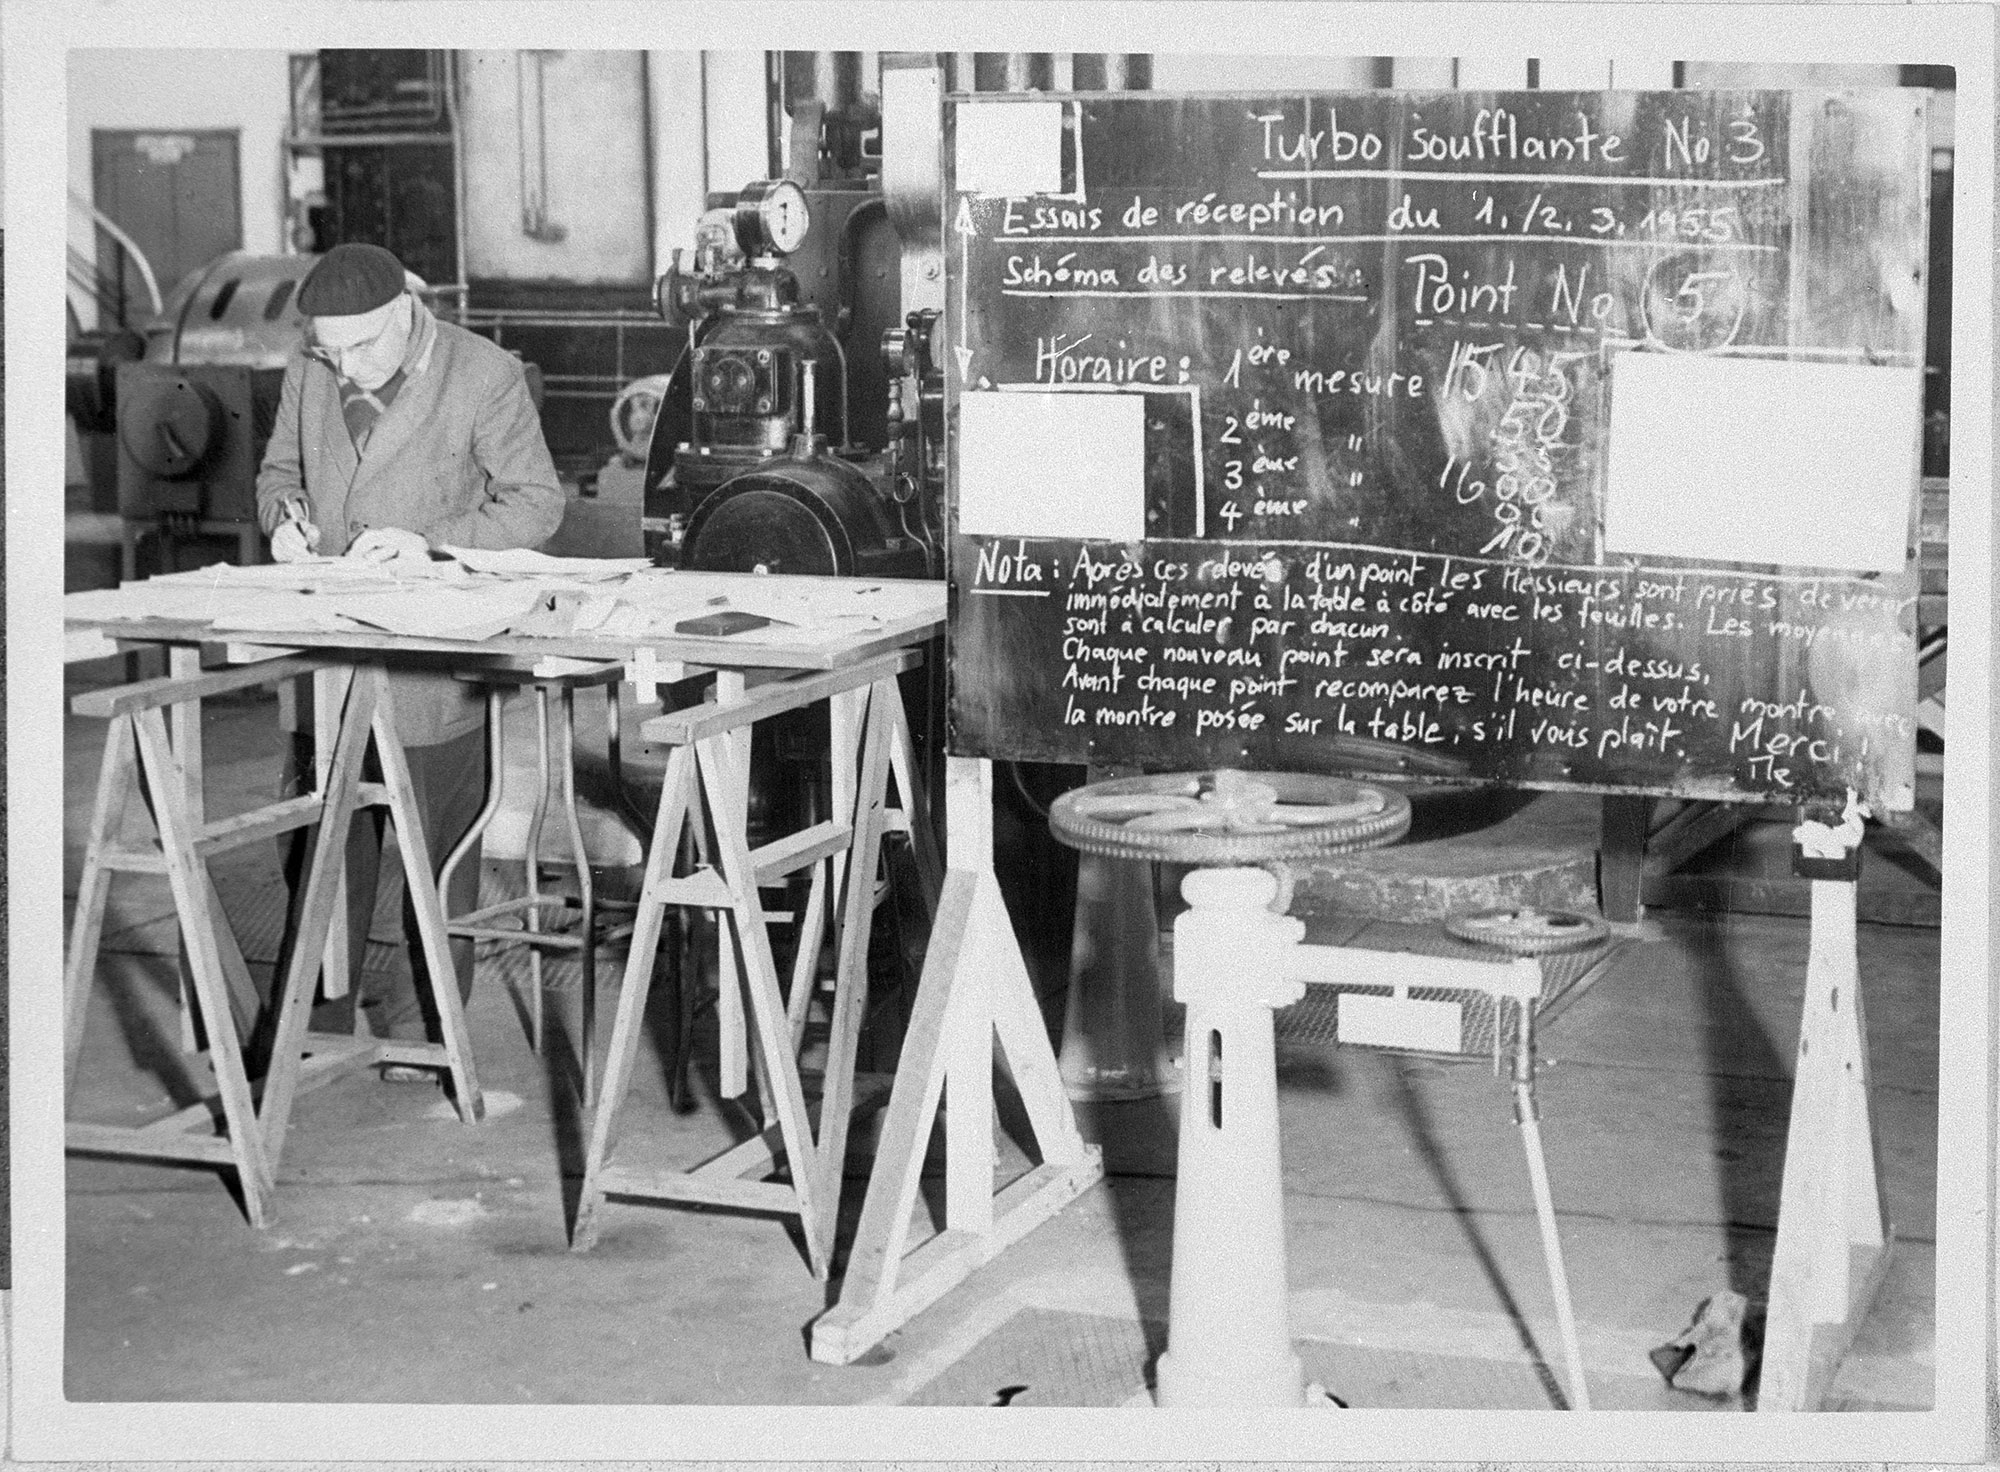 Turbo soufflante No 3
Essais de réception du 1./2.3.1955
Schéma des relevés: Point No 5
Horaire: 1ère mesure 15 45
2ème " 50
3ème " 55
4ème " 16 00
10
Nota: Après ces relevés d'un point les Messieurs sont priés de venir
immédiatement à la table à côté avec les feuilles. Les moyennes
sont à calculer par chacun.
Chaque nouveau point sera inscrit ci-dessus.
Avant chaque point recomparez l'heure de votre montre avec
la montre posée sur la table, s'il vous plaît. Merci!